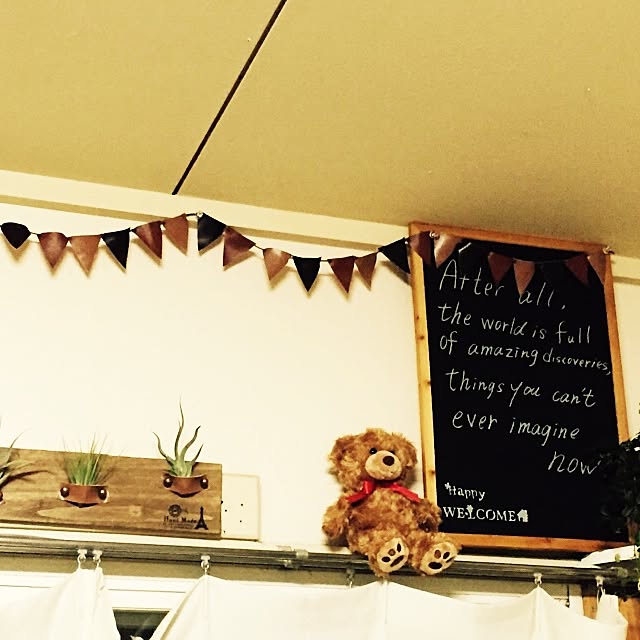 After all,
the world is full
of amazing discoveries,
things you can't
ever imagine
now
Happy
WELCOME
Hand Made